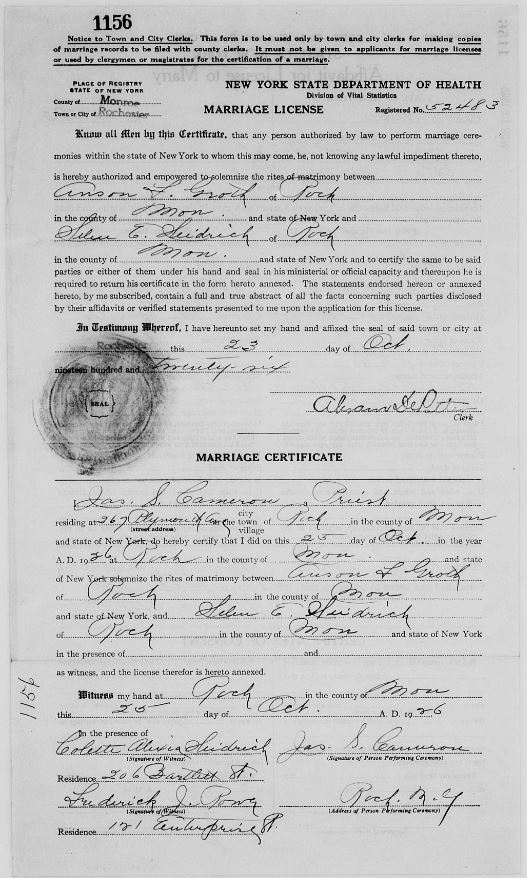 1156
Notice to Town and City Clerks. This form is to be used only by town and city clerks for making copies
of marriage records to be filed with county clerks. It must not be given to applicants for marriage licenses
or used by clergymen or magistrates for the certification of a marriage.
PLACE OF REGISTRY
STATE OF NEW YORK
County of Monroe
Town or City of Rochester
NEW YORK STATE DEPARTMENT OF HEALTH
Division of Vital Statistics
MARRIAGE LICENSE
Registered No. 52483
Know all Men by this Certificate, that any person authorized by law to perform marriage cere-
monies within the state of New York to whom this may come, he, not knowing any lawful impediment thereto,
is hereby authorized and empowered to solemnize the rites of matrimony between
Anson L. Groth of Roch
in the county of Mon. and state of New York and
Helen E. Heidrich of Roch
in the county of Mon. and state of New York and to certify the same to be said
parties or either of them under his hand and seal in his ministerial or official capacity and thereupon he is
required to return his certificate in the form hereto annexed. The statements endorsed hereon or annexed
hereto, by me subscribed, contain a full and true abstract of all the facts concerning such parties disclosed
by their affidavits or verified statements presented to me upon the application for this license.
In Testimony Whereof, I have hereunto set my hand and affixed the seal of said town or city at
Rochester this 23 day of Oct.
nineteen hundred and twenty-six
SEAL
Clerk
MARRIAGE CERTIFICATE
Jas. S. Cameron a Priest
residing at 267 Plymouth Ave in the city town of village Roch in the county of Mon
(street address)
and state of New York, do hereby certify that I did on this 25 day of Oct. in the year
A. D. 1926 at Roch in the county of Mon. and state
of New York solemnize the rites of matrimony between Anson L Groth
of Roch in the county of Mon
and state of New York, and Helen E. Heidrich
of Roch in the county of Mon and state of New York
in the presence of and
as witness, and the license therefor is hereto annexed.
Witness my hand at Roch in the county of Mon
this 25 day of Oct. A. D. 1926
In the presence of
Colette Alexia Heidrich Jas. S. Cameron
(Signature of Witness) (Signature of Person Performing Ceremony)
Residence 206 Bartlett St.
Frederick J. Roch. N. Y
(Signature of Witness) (Address of Person Performing Ceremony)
Residence 121 Enterprise St.
1156